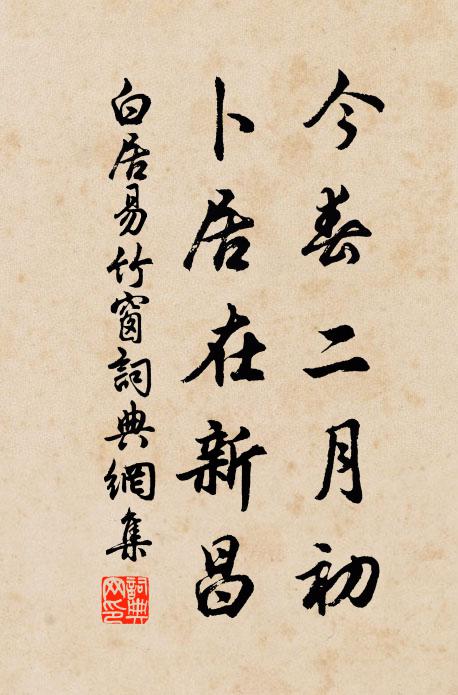 今春二月初
卜居在新昌
白居易竹窗詞典網集
詞典網印